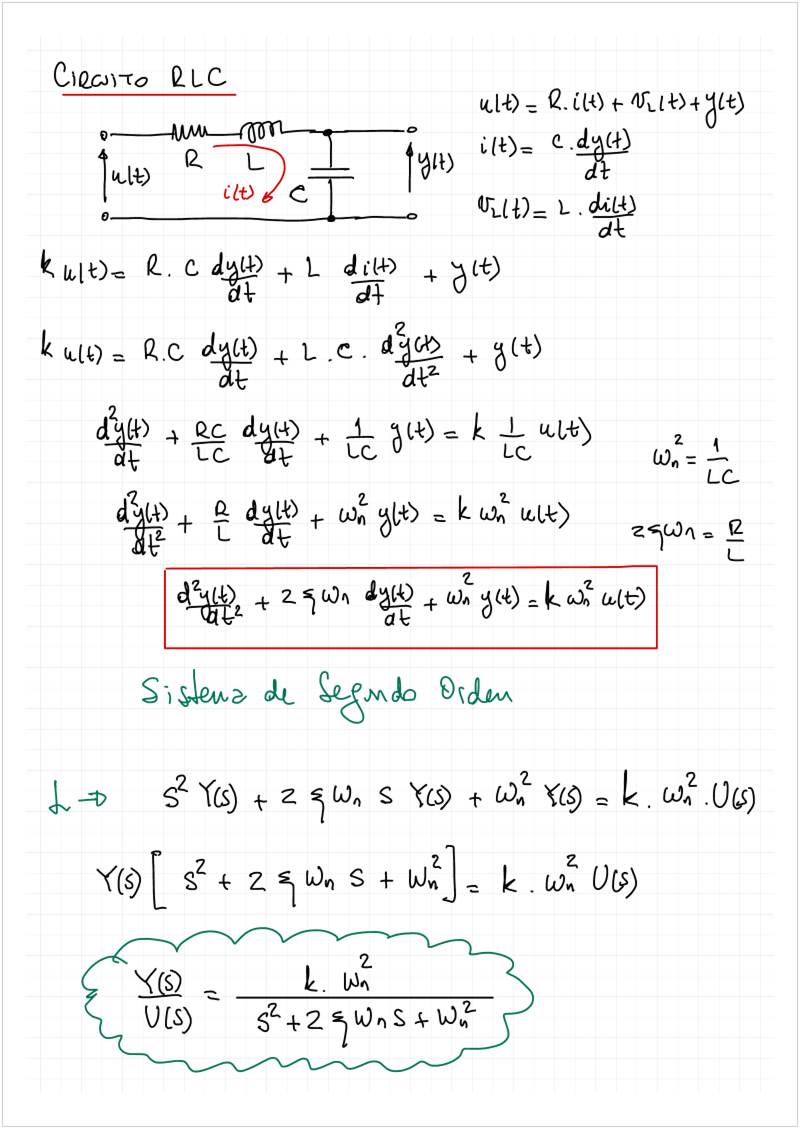 CIRCUITO RLC
u(t) = R.i(t) + v_L(t) + y(t)
i(t) = C.dy(t)/dt
v_L(t) = L.di(t)/dt
u(t) R L i(t) C y(t)
k u(t) = R.C dy(t)/dt + L di(t)/dt + y(t)
k u(t) = R.C dy(t)/dt + L.C.d²y(t)/dt² + y(t)
d²y(t)/dt + RC/LC dy(t)/dt + 1/LC y(t) = k 1/LC u(t)
ωn² = 1/LC
d²y(t)/dt² + R/L dy(t)/dt + ωn² y(t) = k ωn² u(t)
2ξωn = R/L
d²y(t)/dt² + 2ξωn dy(t)/dt + ωn² y(t) = k ωn² u(t)
Sistema de Segundo Orden
L ⇒ S² Y(s) + 2ξωn S Y(s) + ωn² Y(s) = k.ωn².U(s)
Y(s)[S² + 2ξωn S + ωn²] = k.ωn² U(s)
Y(s)/U(s) = k.ωn²/(S² + 2ξωn S + ωn²)